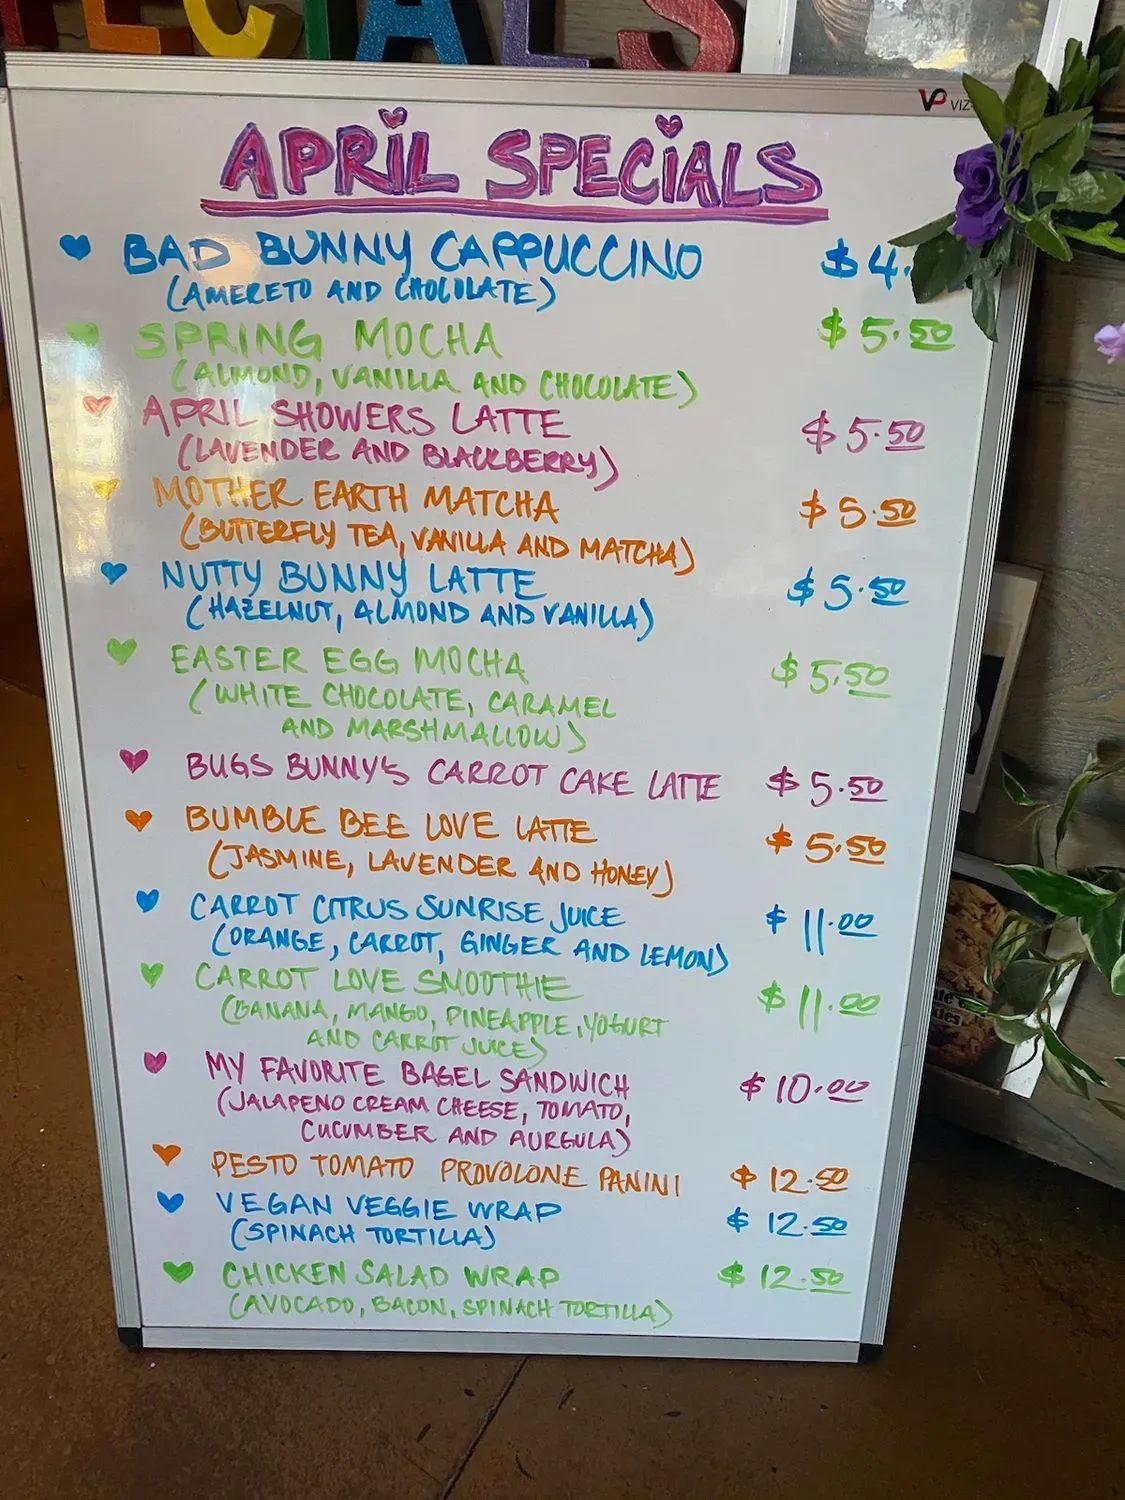 ECIALS
VIZ-
APRIL SPECIALS
BAD BUNNY CAPPUCCINO $4.
(AMERETO AND CHOCOLATE)
SPRING MOCHA $5.50
(ALMOND, VANILLA AND CHOCOLATE)
APRIL SHOWERS LATTE $5.50
(LAVENDER AND BLACKBERRY)
MOTHER EARTH MATCHA $5.50
(BUTTERFLY TEA, VANILLA AND MATCHA)
NUTTY BUNNY LATTE $5.50
(HAZELNUT, ALMOND AND VANILLA)
EASTER EGG MOCHA $5.50
(WHITE CHOCOLATE, CARAMEL
AND MARSHMALLOW)
BUGS BUNNY'S CARROT CAKE LATTE $5.50
BUMBLE BEE LOVE LATTE $5.50
(JASMINE, LAVENDER AND HONEY)
CARROT CITRUS SUNRISE JUICE $11.00
(ORANGE, CARROT, GINGER AND LEMON)
CARROT LOVE SMOOTHIE $11.00
(BANANA, MANGO, PINEAPPLE, YOGURT
AND CARROT JUICE)
MY FAVORITE BAGEL SANDWICH $10.00
(JALAPENO CREAM CHEESE, TOMATO,
CUCUMBER AND AURGULA)
PESTO TOMATO PROVOLONE PANINI $12.50
VEGAN VEGGIE WRAP $12.50
(SPINACH TORTILLA)
CHICKEN SALAD WRAP $12.50
(AVOCADO, BACON, SPINACH TORTILLA)